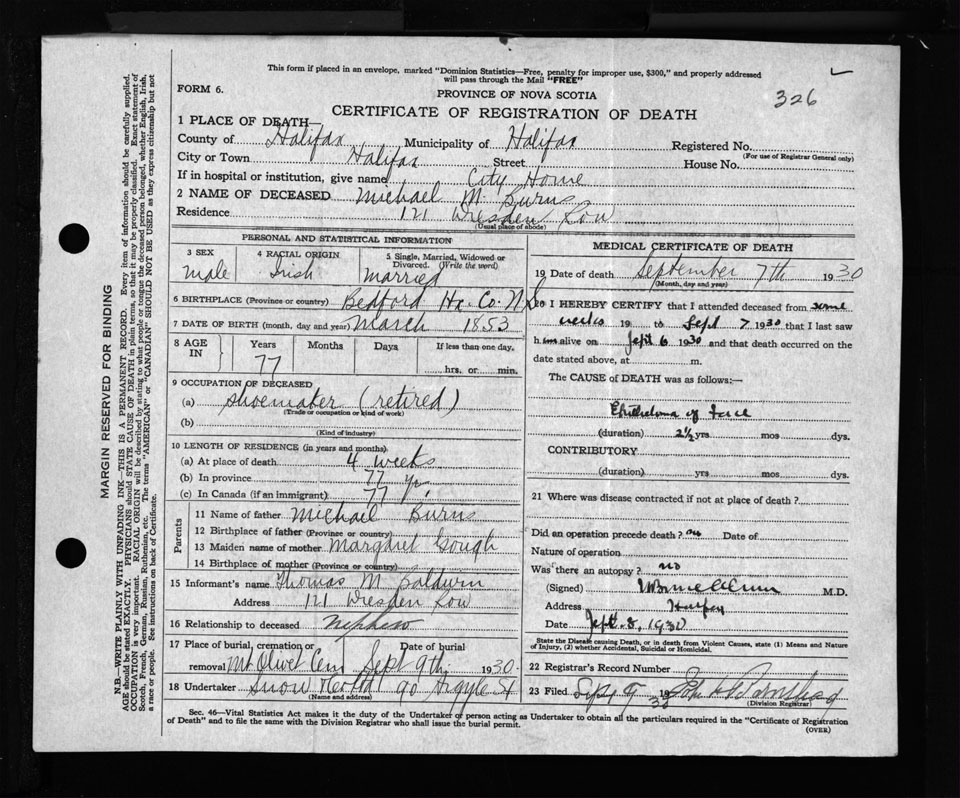 This form if placed in an envelope, marked "Dominion Statistics—Free, penalty for improper use, $300," and properly addressed
will pass through the Mail "FREE"
326
FORM 6.
PROVINCE OF NOVA SCOTIA
CERTIFICATE OF REGISTRATION OF DEATH
1 PLACE OF DEATH—
County of Halifax Municipality of Halifax Registered No.
(For use of Registrar General only)
City or Town Halifax Street House No.
If in hospital or institution, give name City Home
2 NAME OF DECEASED Michael M. Burns
Residence 121 Dresden Row
(Usual place of abode)
PERSONAL AND STATISTICAL INFORMATION
3 SEX 4 RACIAL ORIGIN 5 Single, Married, Widowed or Divorced. (Write the word)
Male Irish Married
6 BIRTHPLACE (Province or country) Bedford Hx. Co. N.S.
7 DATE OF BIRTH (month, day and year) March 1853
8 AGE IN Years Months Days If less than one day.
77 hrs. or min.
9 OCCUPATION OF DECEASED
(a) Shoemaker (retired)
(Trade or occupation or kind of work)
(b)
(Kind of industry)
10 LENGTH OF RESIDENCE (in years and months)
(a) At place of death 4 weeks
(b) In province 77 yr.
(c) In Canada (if an immigrant) 77
Parents
11 Name of father Michael Burns
12 Birthplace of father (Province or country)
13 Maiden name of mother Margaret Gough
14 Birthplace of mother (Province or country)
15 Informant's name Thomas M. Baldwin
Address 121 Dresden Row
16 Relationship to deceased Nephew
17 Place of burial, cremation or removal Date of burial
Mt Olivet Cem Sept 9th 1930.
18 Undertaker Snow 90 Argyle St
(Name and address)
MEDICAL CERTIFICATE OF DEATH
19 Date of death September 7th 1930
(Month, day and year)
20 I HEREBY CERTIFY that I attended deceased from some
weeks 19 to Sept 7 1930 that I last saw
h im alive on Sept 6 1930 and that death occurred on the
date stated above, at m.
The CAUSE of DEATH was as follows:—
Epithelioma of face
(duration) 2½ yrs mos dys.
CONTRIBUTORY
(duration) yrs mos dys.
21 Where was disease contracted if not at place of death?
Did an operation precede death? no Date of
Nature of operation
Was there an autopay? no
(Signed) M.D.
Address Halifax
Date Sept. 8, 1930
State the Disease causing Death, or in death from Violent Causes, state (1) Means and Nature
of Injury, (2) whether Accidental, Suicidal or Homicidal.
22 Registrar's Record Number
23 Filed Sept 9 1930
(Division Registrar)
Sec. 46—Vital Statistics Act makes it the duty of the Undertaker or person acting as Undertaker to obtain all the particulars required in the "Certificate of Registration
of Death" and to file the same with the Division Registrar who shall issue the burial permit.
(OVER)
MARGIN RESERVED FOR BINDING
N.B.—WRITE PLAINLY WITH UNFADING INK—THIS IS A PERMANENT RECORD. Every item of information should be carefully supplied.
AGE should be stated EXACTLY. PHYSICIANS should STATE CAUSE OF DEATH in plain terms, so that it may be properly classified. Exact statement of
OCCUPATION is very important. RACIAL ORIGIN will be described by stating to what people or tongue the deceased person belonged, whether English, Irish,
Scotch, French, German, Russian, Ruthenian, etc. The terms "AMERICAN" or "CANADIAN" SHOULD NOT BE USED as they express citizenship but not
a race or people. See instructions on back of Certificate.